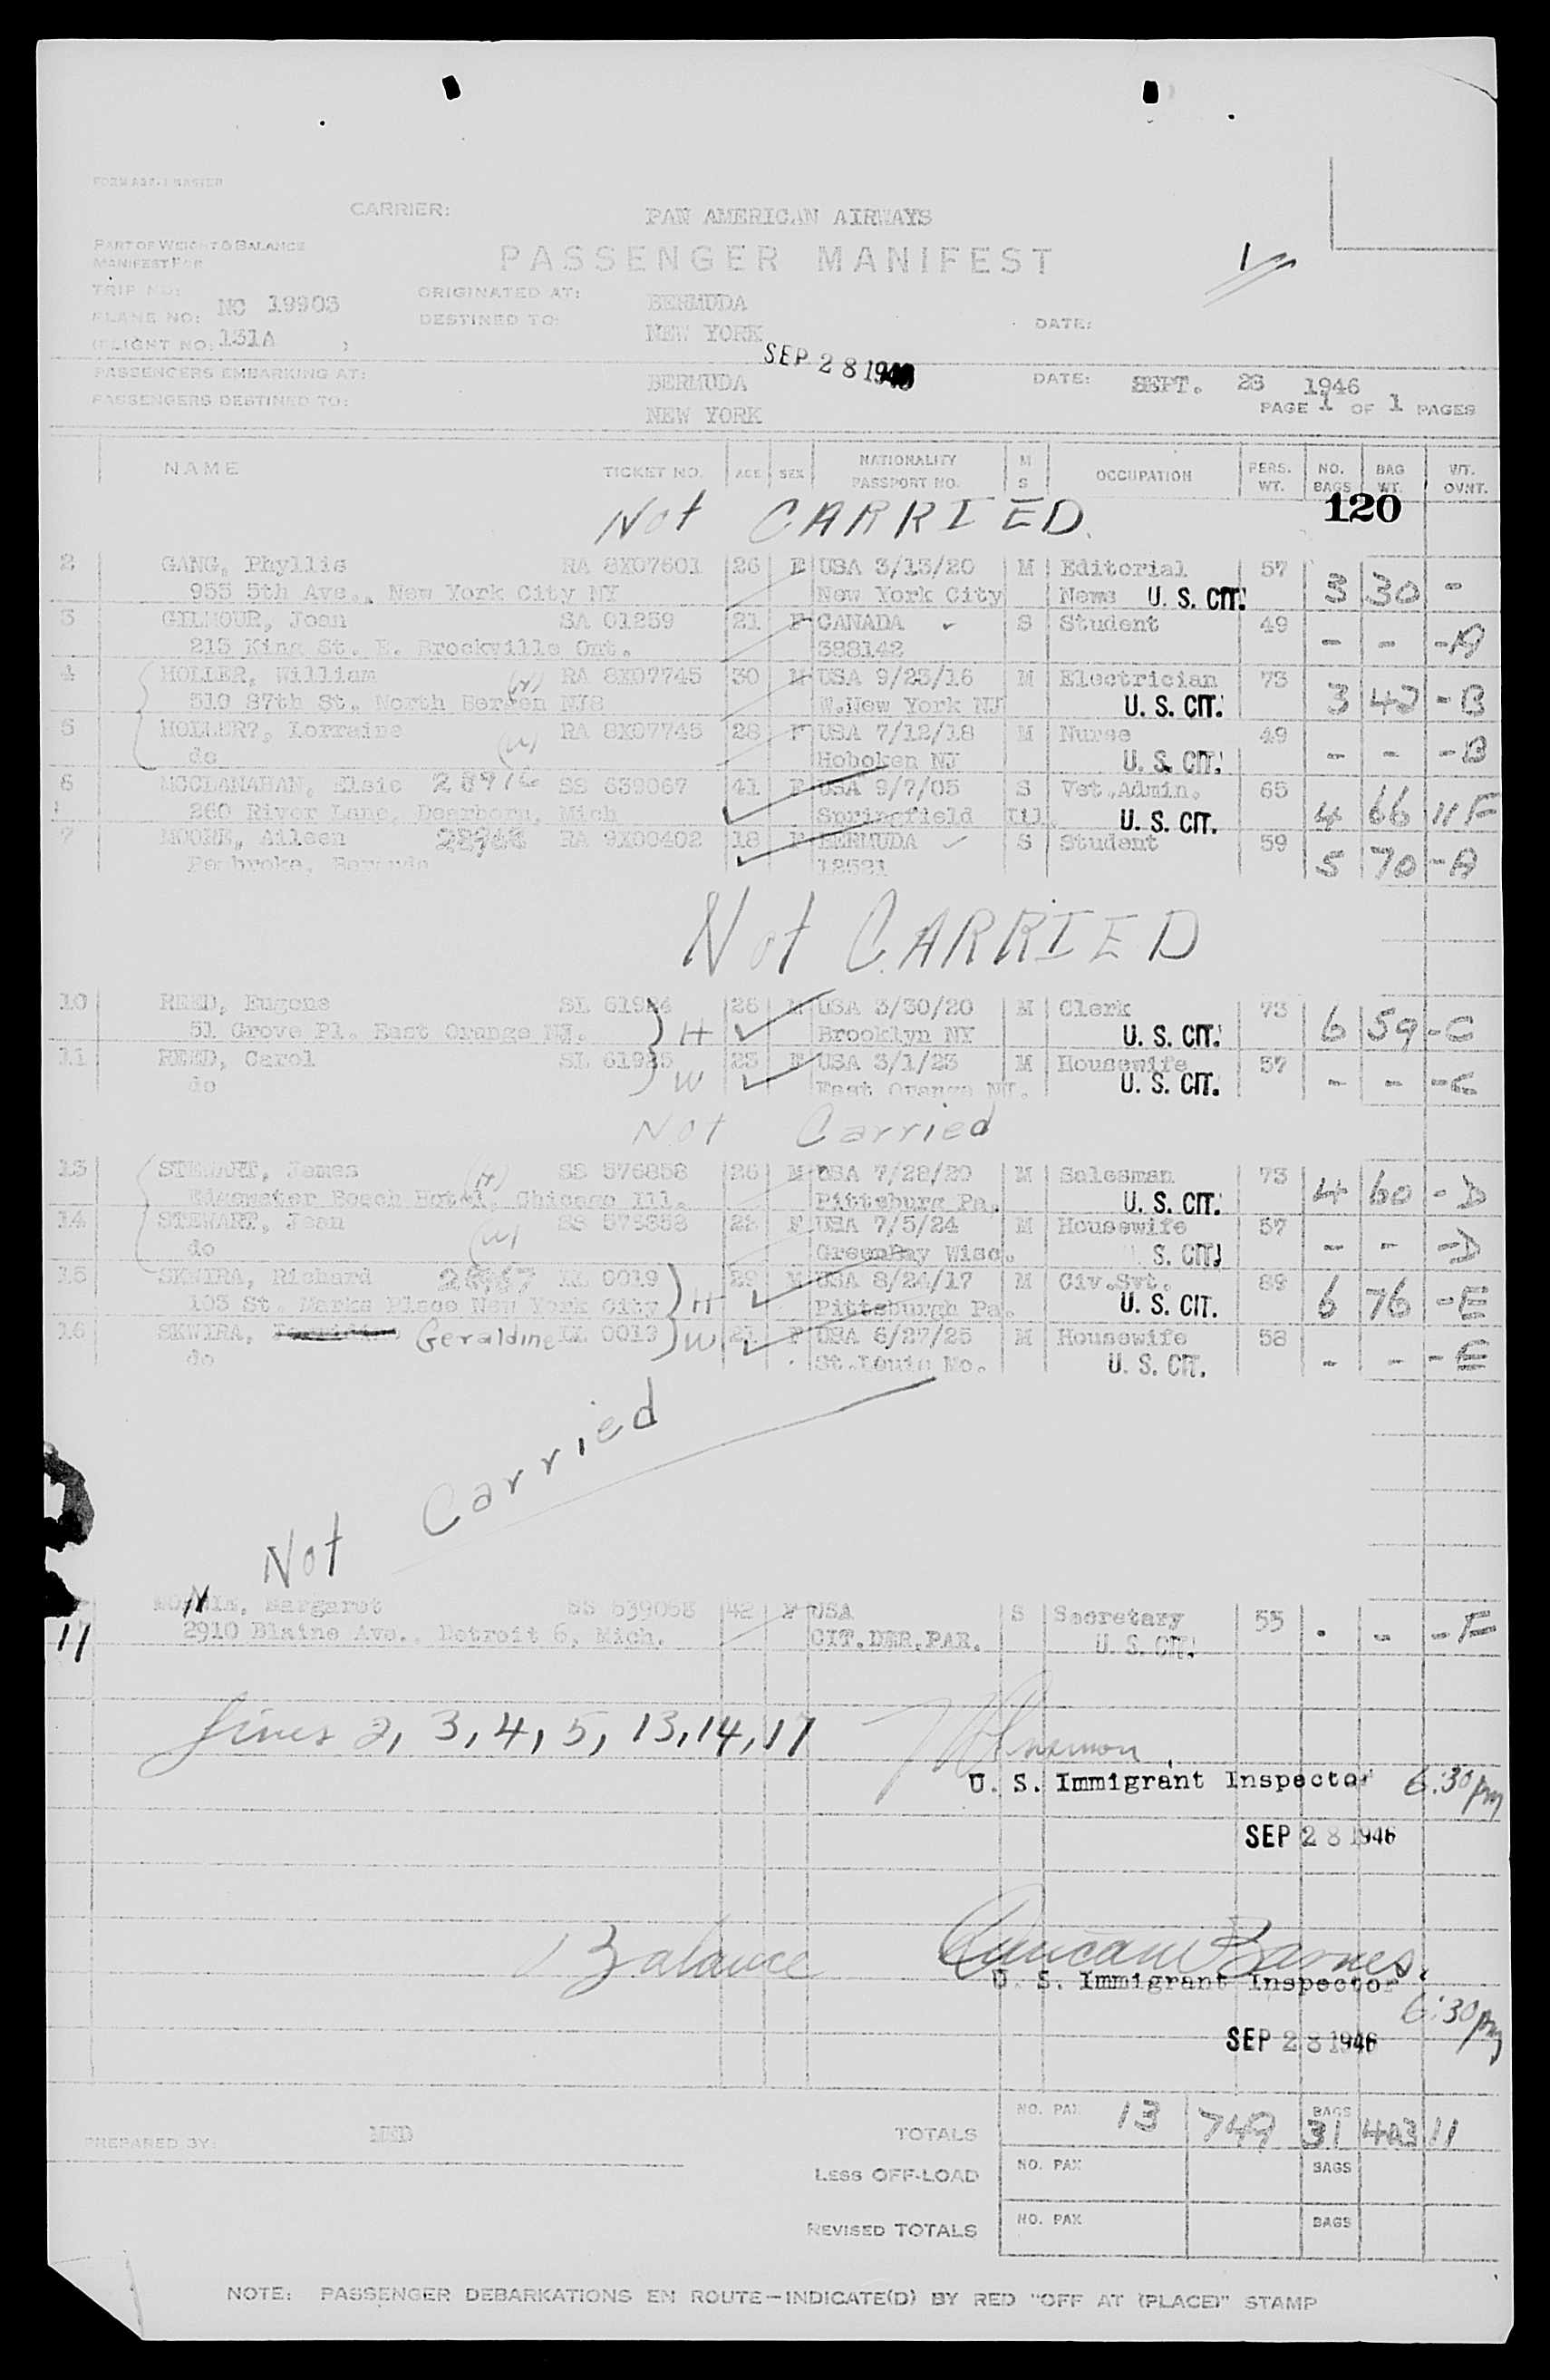 FORM
CARRIER: PAN AMERICAN AIRWAYS
PART OF WEIGHT & BALANCE
MANIFEST FOR
PASSENGER MANIFEST
TRIP NO:
PLANE NO: NC 19903
(FLIGHT NO: 131A )
ORIGINATED AT: BERMUDA
DESTINED TO: NEW YORK
DATE:
SEP 28 1946
PASSENGERS EMBARKING AT: BERMUDA
DATE: SEPT. 28 1946
PASSENGERS DESTINED TO: NEW YORK
PAGE 1 OF 1 PAGES
NAME TICKET NO. AGE SEX NATIONALITY PASSPORT NO. M S OCCUPATION PERS. WT. NO. BAGS BAG WT. WT. OVNT.
Not CARRIED.
120
2 GANG, Phyllis RA 8X07601 26 F USA 3/13/20 M Editorial 57 3 30 -
955 5th Ave., New York City NY New York City News U. S. CIT.
3 GILMOUR, Joan SA 01259 21 F CANADA ✓ S Student 49 - - -A
215 King St. E. Brockville Ont. 398142
4 HOLLER, William (H) RA 8X07745 30 M USA 9/23/16 M Electrician 73 3 42 -B
510 87th St. North Bergen NJ W.New York NJ U. S. CIT.
5 HOLLER, Lorraine (W) RA 8X07745 28 F USA 7/12/18 M Nurse 49 - - -B
do Hoboken NJ U. S. CIT.
6 MCCLANAHAN, Elsie 28916 SS 639067 41 F USA 9/7/05 S Vet.Admin. 65 4 66 11 F
260 River Lane, Dearborn, Mich Springfield Ill. U. S. CIT.
7 MOORE, Aileen RA 9X00402 18 F BERMUDA ✓ S Student 59 5 70 -A
Pembroke, Bermuda 12521
Not CARRIED
10 REED, Eugene SL 61984 H 26 M USA 3/30/20 M Clerk 73 6 59 -C
51 Grove Pl. East Orange NJ. Brooklyn NY U. S. CIT.
11 REED, Carol SL 61985 W 23 F USA 3/1/23 M Housewife 57 - - -C
do East Orange NJ. U. S. CIT.
Not Carried
13 STEWART, James (H) SS 576858 26 M USA 7/28/20 M Salesman 73 4 60 -D
Edgewater Beach Hotel, Chicago Ill. Pittsburg Pa. U. S. CIT.
14 STEWART, Jean (W) 22 F USA 7/5/24 M Housewife 57 - - -D
do GreenBay Wisc. S. CIT.
15 SKWIRA, Richard 28967 0019 H 29 M USA 8/24/17 M Civ.Svt. 89 6 76 -E
103 St. Marks Place New York City Pittsburgh Pa. U. S. CIT.
16 SKWIRA, Geraldine 0019 W 21 F USA 6/27/25 M Housewife 58 - - -E
do St.Louis Mo. U. S. CIT.
Not Carried
Margaret SS 639068 42 F USA S Secretary 55 - - -F
17 2910 Blaine Ave., Detroit 6, Mich. CIT.DER.PAR. U. S. CIT.
Lines 2, 3, 4, 5, 13, 14, 17
U. S. Immigrant Inspector 6:30 pm
SEP 28 1946
Balance Duncan Barnes.
U. S. Immigrant Inspector
6:30 pm
SEP 28 1946
PREPARED BY: TOTALS NO. PAX 13 749 BAGS 31 403 11
LESS OFF-LOAD NO. PAX BAGS
REVISED TOTALS NO. PAX BAGS
NOTE: PASSENGER DEBARKATIONS EN ROUTE—INDICATE(D) BY RED "OFF AT (PLACE)" STAMP